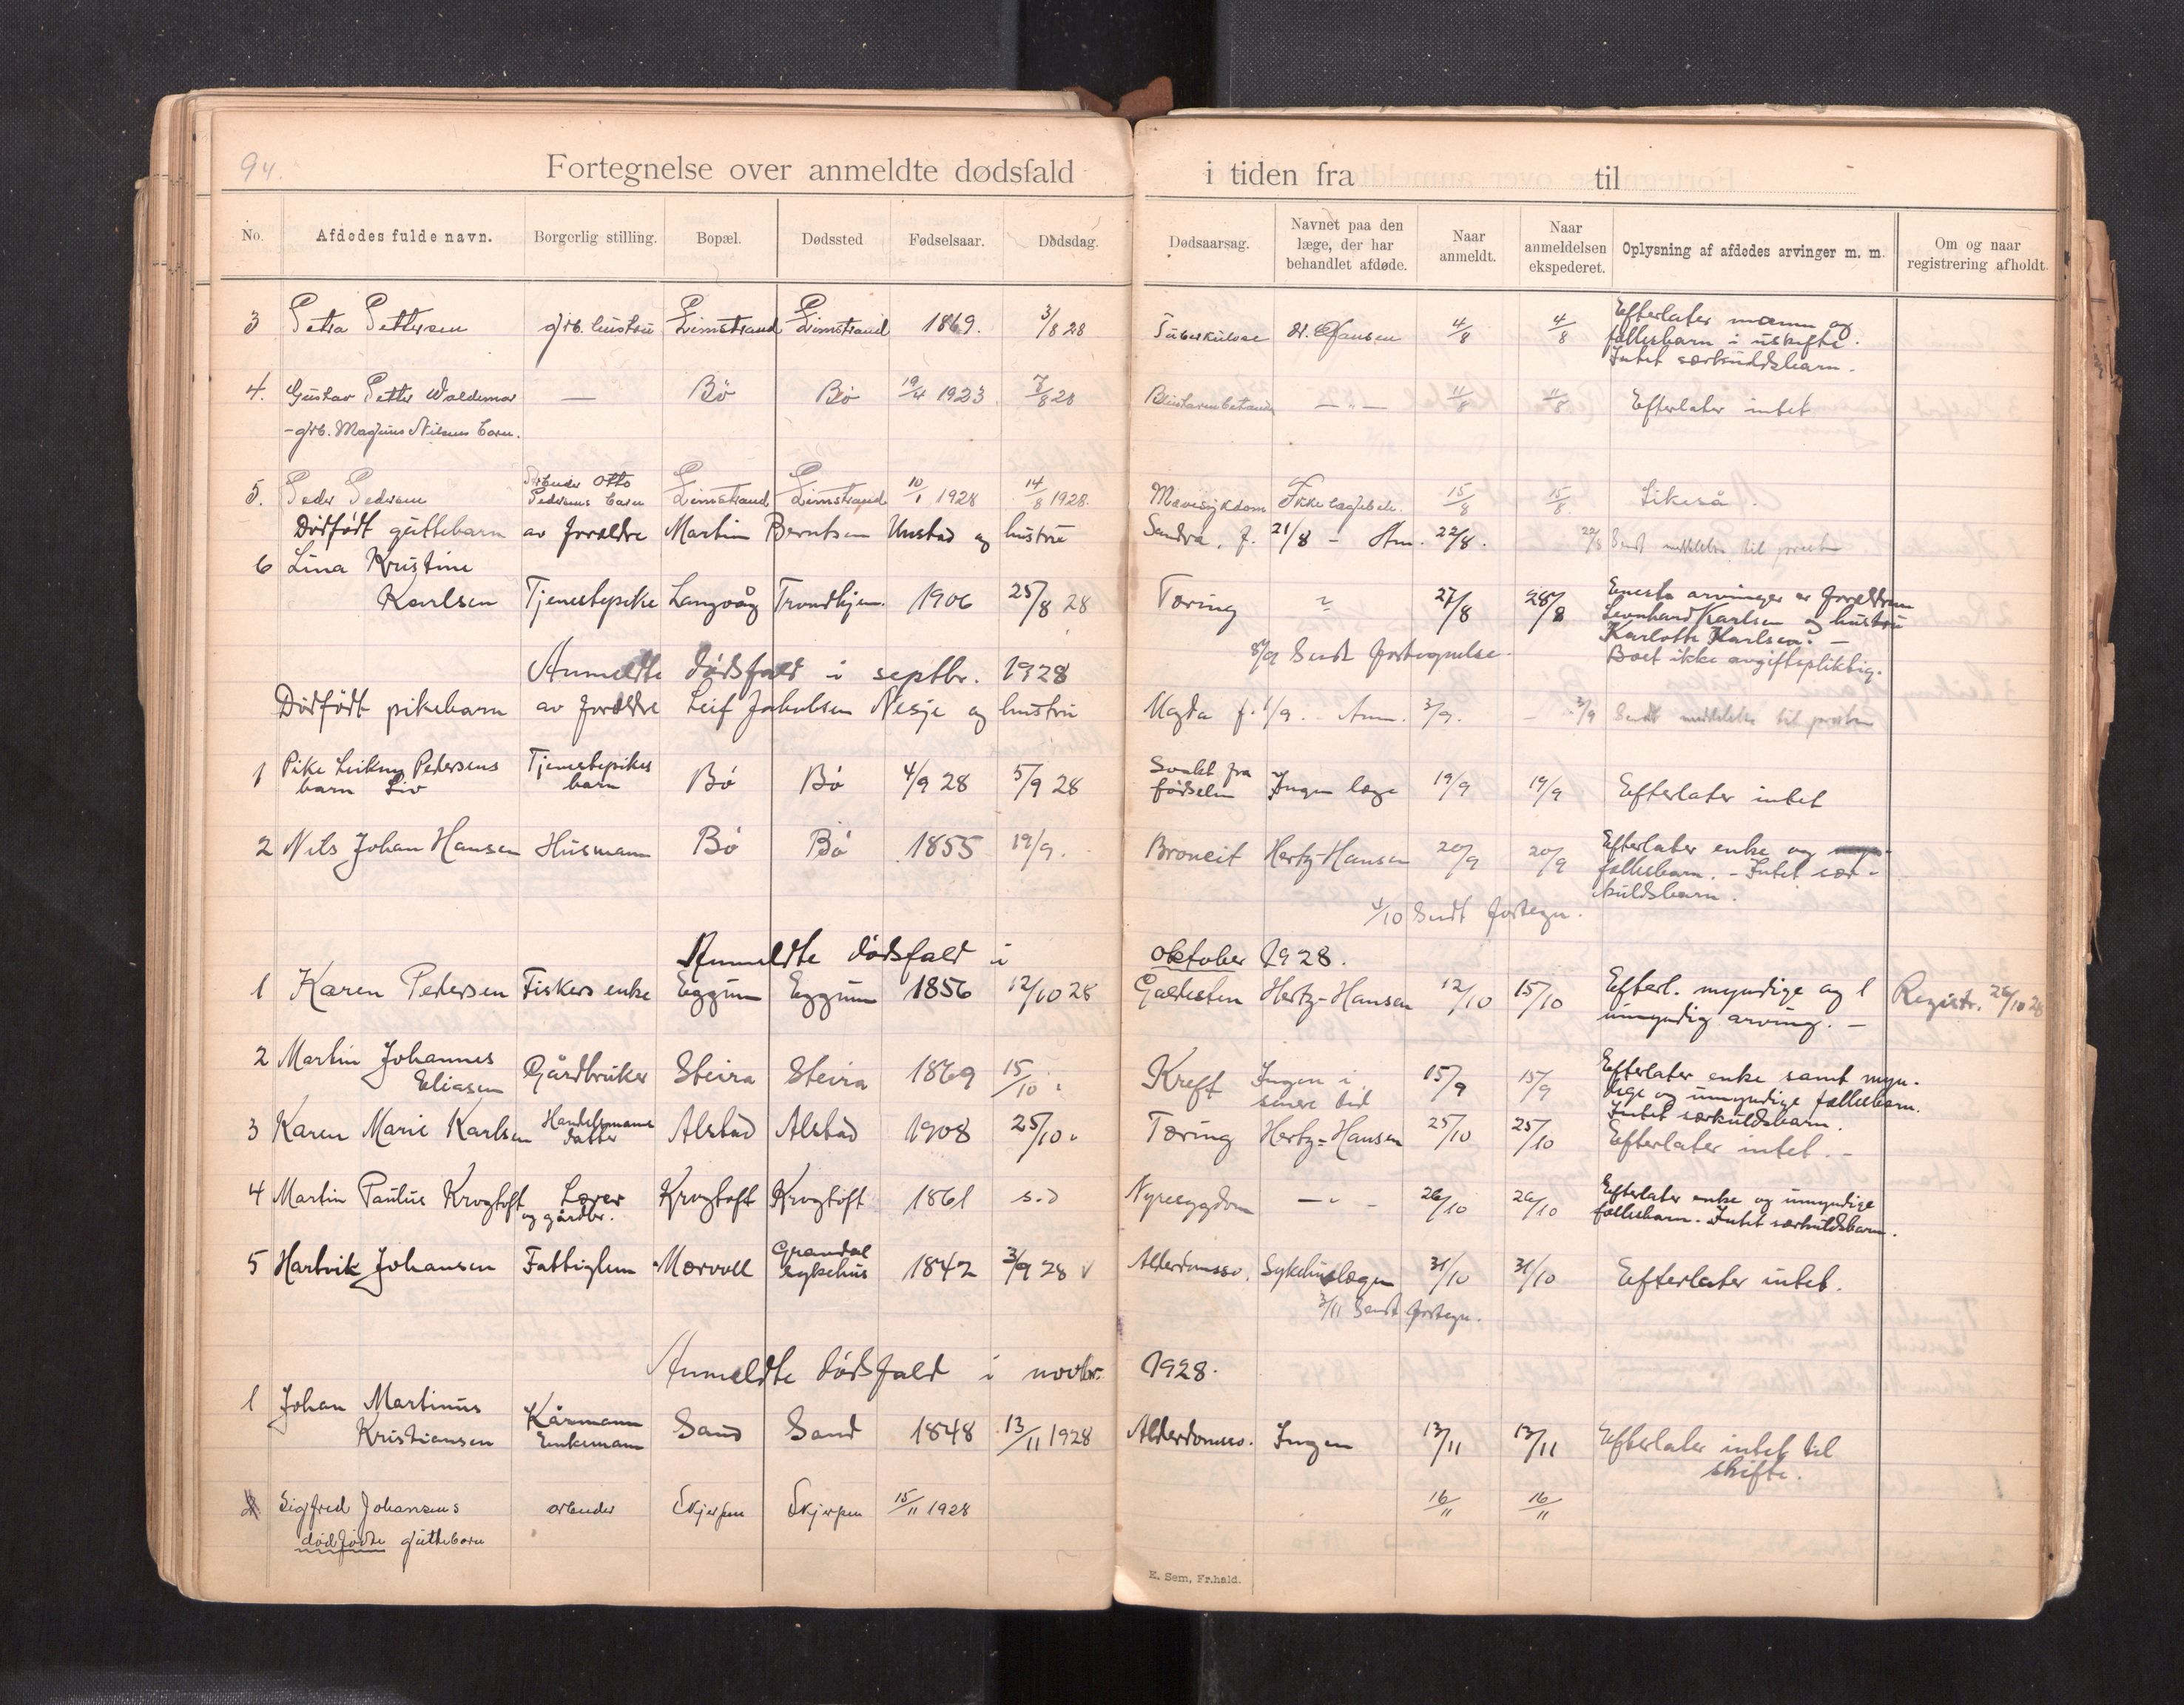 94.
Fortegnelse over anmeldte dødsfald i tiden fra til
No. Afdødes fulde navn. Borgerlig stilling. Bopæl. Dødssted Fødselsaar. Dødsdag. Dødsaarsag. Navnet paa den læge, der har behandlet afdøde. Naar anmeldt. Naar anmeldelsen ekspederet. Oplysning af afdødes arvinger m. m. Om og naar registrering afholdt.
3 Petra Pettersen grb. hustru Limstrand Limstrand 1869. 3/8 28 Tuberkulose 4/8 4/8 Efterlater mann og
fællesbarn i uskifte.
Intet særkuldsbarn.
4. Gustav Petter Waldemar — Bö Bö 19/4 1923 7/8 28 —"— 11/8 11/8 Efterlater intet
- grb. Magnus Nilsens barn.
5. Peder Pedersen Arbeider Otto Pedersens barn Limstrand Limstrand 10/1 1928 14/8 1928. Mavesykdom 15/8 15/8 Likeså.
Dödfödt guttebarn av forældre Martin Berntsen Unstad og hustru Sandra, f. 21/8 - Anm. 22/8. 22/8 Sendt meddelelse til presten
6 Lina Kristine
Karlsen Tjenestepike Langvåg Trondhjem. 1906 25/8 28 Tæring " 27/8 28/8 Eneste arvinger er forældrene
Leonhard Karlsen og hustru
Karlotte Karlsen. —
Boet ikke avgiftspliktig.
Sendt fortegnelse.
Anmeldte dödsfald i septbr. 1928
Dödfödt pikebarn av forældre Leif Jakobsen Nesje og hustru Magda f. 1/9. Anm. 3/9. - 3/9 Sendt meddelelse til presten
1 Pike Leikny Pedersens
barn Liv Tjenestepikes barn Bö Bö 4/9 28 5/9 28 Svakt fra
födselen Ingen læge 19/9 19/9 Efterlater intet
2 Nils Johan Hansen Husmann Bö Bö 1855 19/9. Broneit Hertz-Hansen 20/9 20/9 Efterlater enke og
fællesbarn. - Intet sær-
kuldsbarn.
4/10 Sendt fortegn.
Anmeldte dödsfald i oktober 1928.
1 Karen Pedersen Fiskers enke Eggum Eggum 1856 12/10 28 Galdesten Hertz-Hansen 12/10 15/10 Efterl. myndige og 1
umyndig arving. — Registr. 26/10 28
2 Martin Johannes
Eliasen Gårdbruker Steira Steira 1869 15/10 " Kreft Ingen i
senere tid 15/9 15/9 Efterlater enke samt myn-
dige og umyndige fællesbarn.
Intet særkuldsbarn.
3 Karen Marie Karlsen Handelsmanns datter Alstad Alstad 1908 25/10 " Tæring Hertz-Hansen 25/10 25/10 Efterlater intet. -
4 Martin Paulus Krogtoft Lærer
og gårdbr. Krogtoft Krogtoft 1861 s.d Nyresygdom —"— 26/10 26/10 Efterlater enke og umyndige
fællesbarn. Intet særkuldsbarn.
5 Hartvik Johansen Fattiglem Mærvoll Gravdal
sykehus 1842 3/9 28 Alderdomssv. Sykehuslægen 31/10 31/10 Efterlater intet.
3/11 Sendt fortegn.
Anmeldte dödsfald i novbr. 1928.
1 Johan Martinus
Kristiansen Kårmann
Enkemann Sand Sand 1848 13/11 1928 Alderdomssv. Ingen 13/11 13/11 Efterlater intet til
skifte.
2 Sigfred Johansens arbeider Skjerpen Skjerpen 15/11 1928 16/11 16/11
dødfødte guttebarn
E. Sem, Fr.hald.